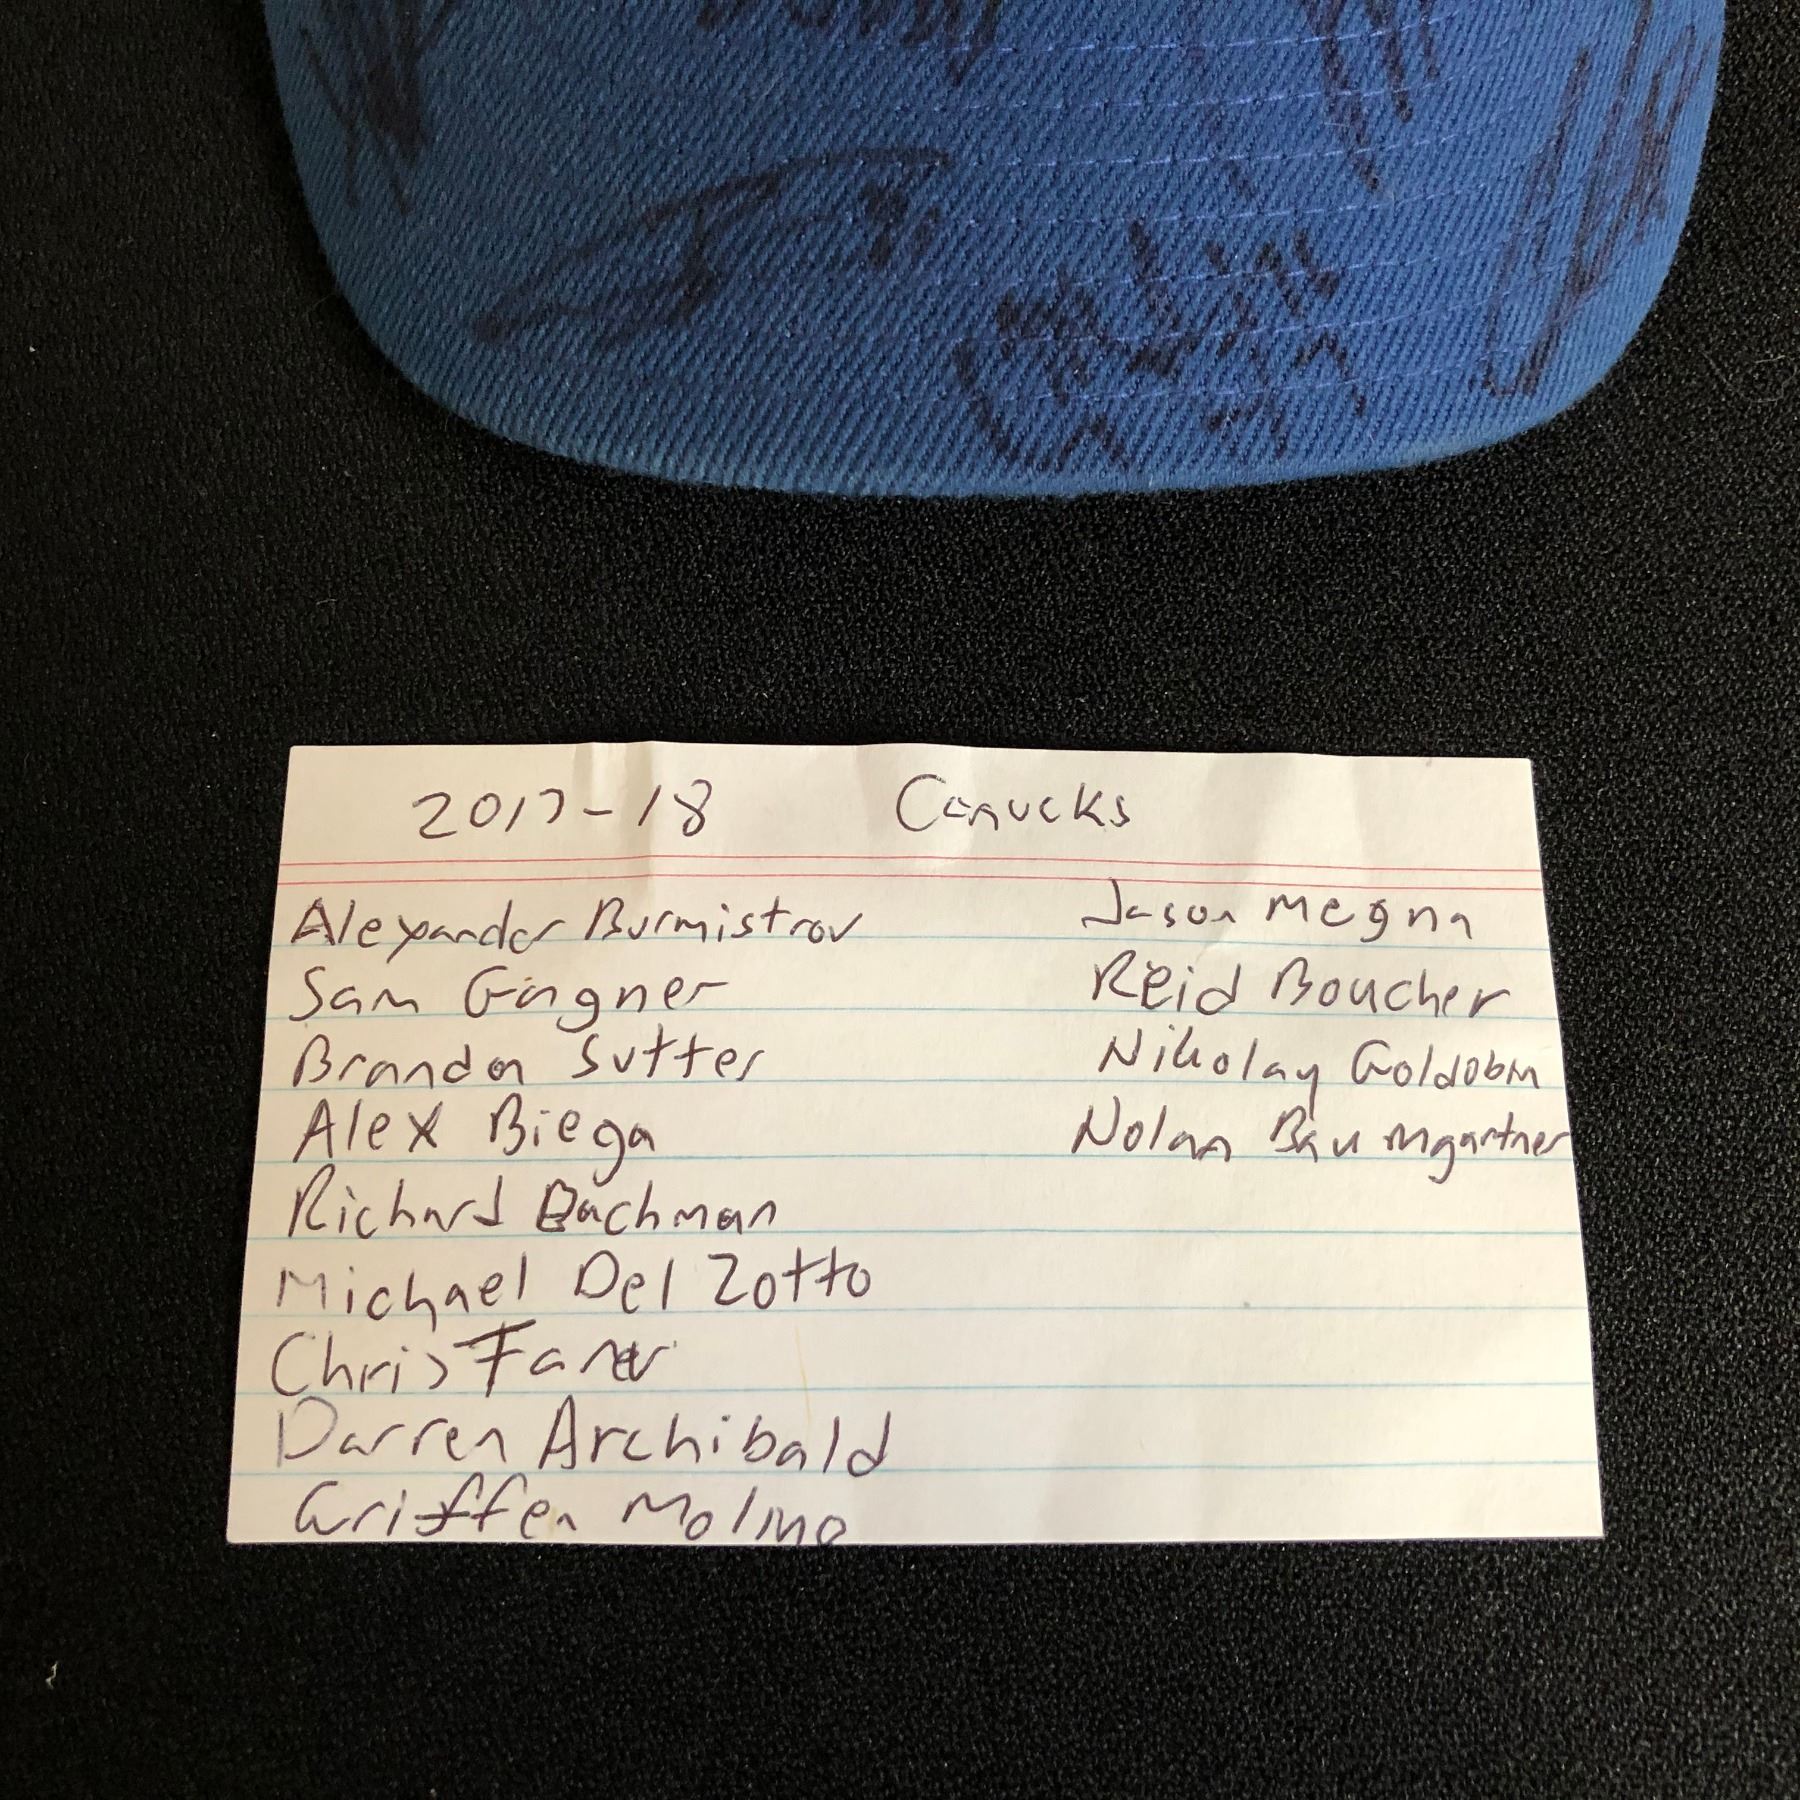 2017-18 Canucks
Alexander Burmistrov
Sam Gagner
Brandon Sutter
Alex Biega
Richard Bachman
Michael Del Zotto
Chris
Darren Archibald
Griffen Molino
Jason Megna
Reid Boucher
Nikolay Goldobin
Nolan Baumgartner